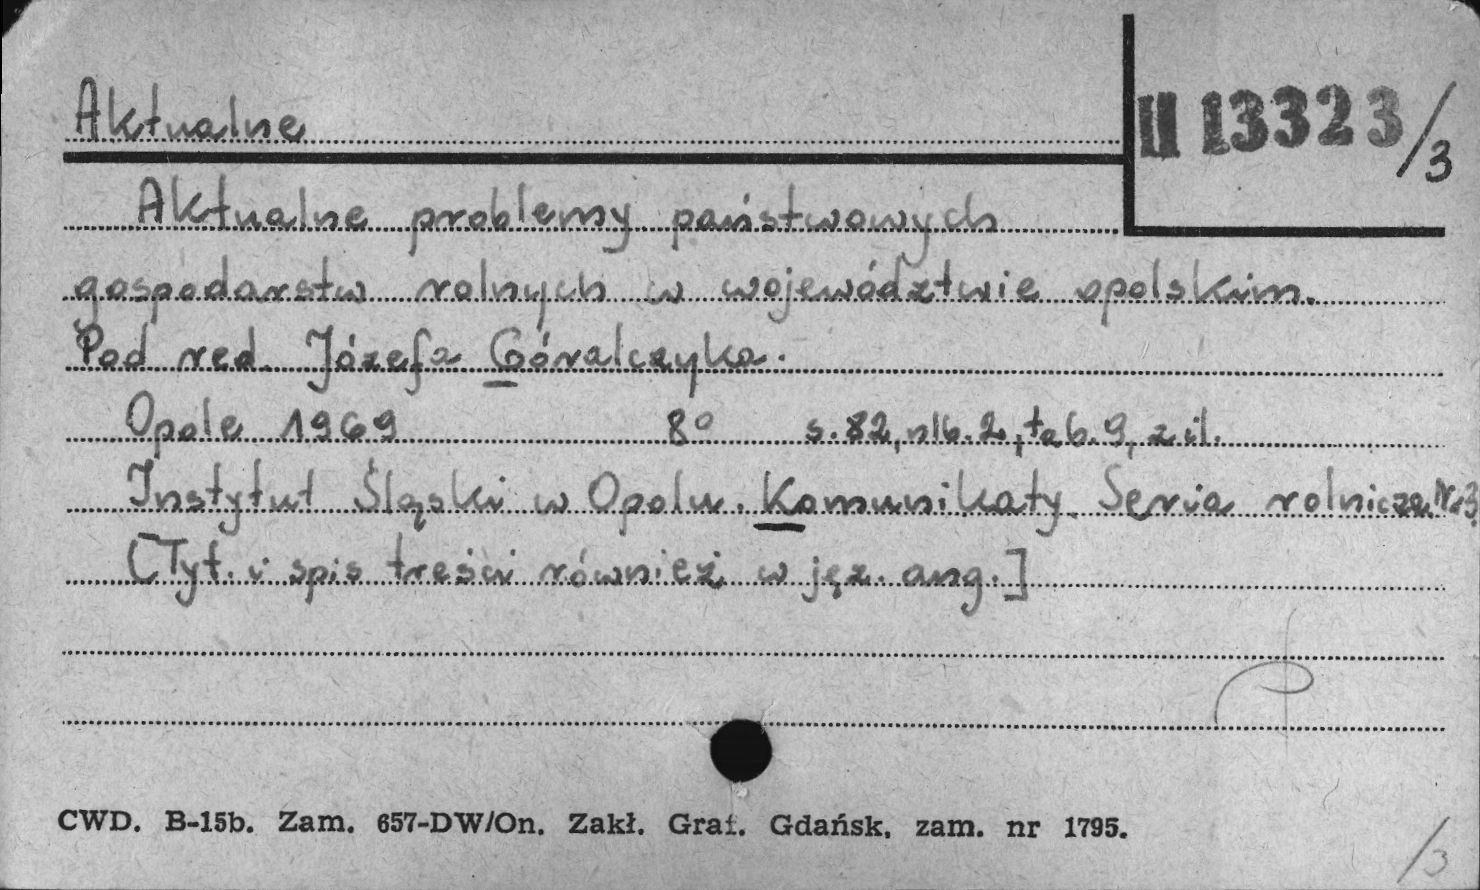 Aktualne
II 13323/3
Aktualne problemy państwowych
gospodarstw rolnych w województwie opolskim.
Pod red. Józefa Góralczyka.
Opole 1969 8° s. 82, nlb. 2, tab. 9, z il.
Instytut Śląski w Opolu. Komunikaty. Seria rolnicza. Nr 3.
[Tyt. i spis treści również w jęz. ang.]
CWD. B-15b. Zam. 657-DW/On. Zakł. Graf. Gdańsk, zam. nr 1795.
/3